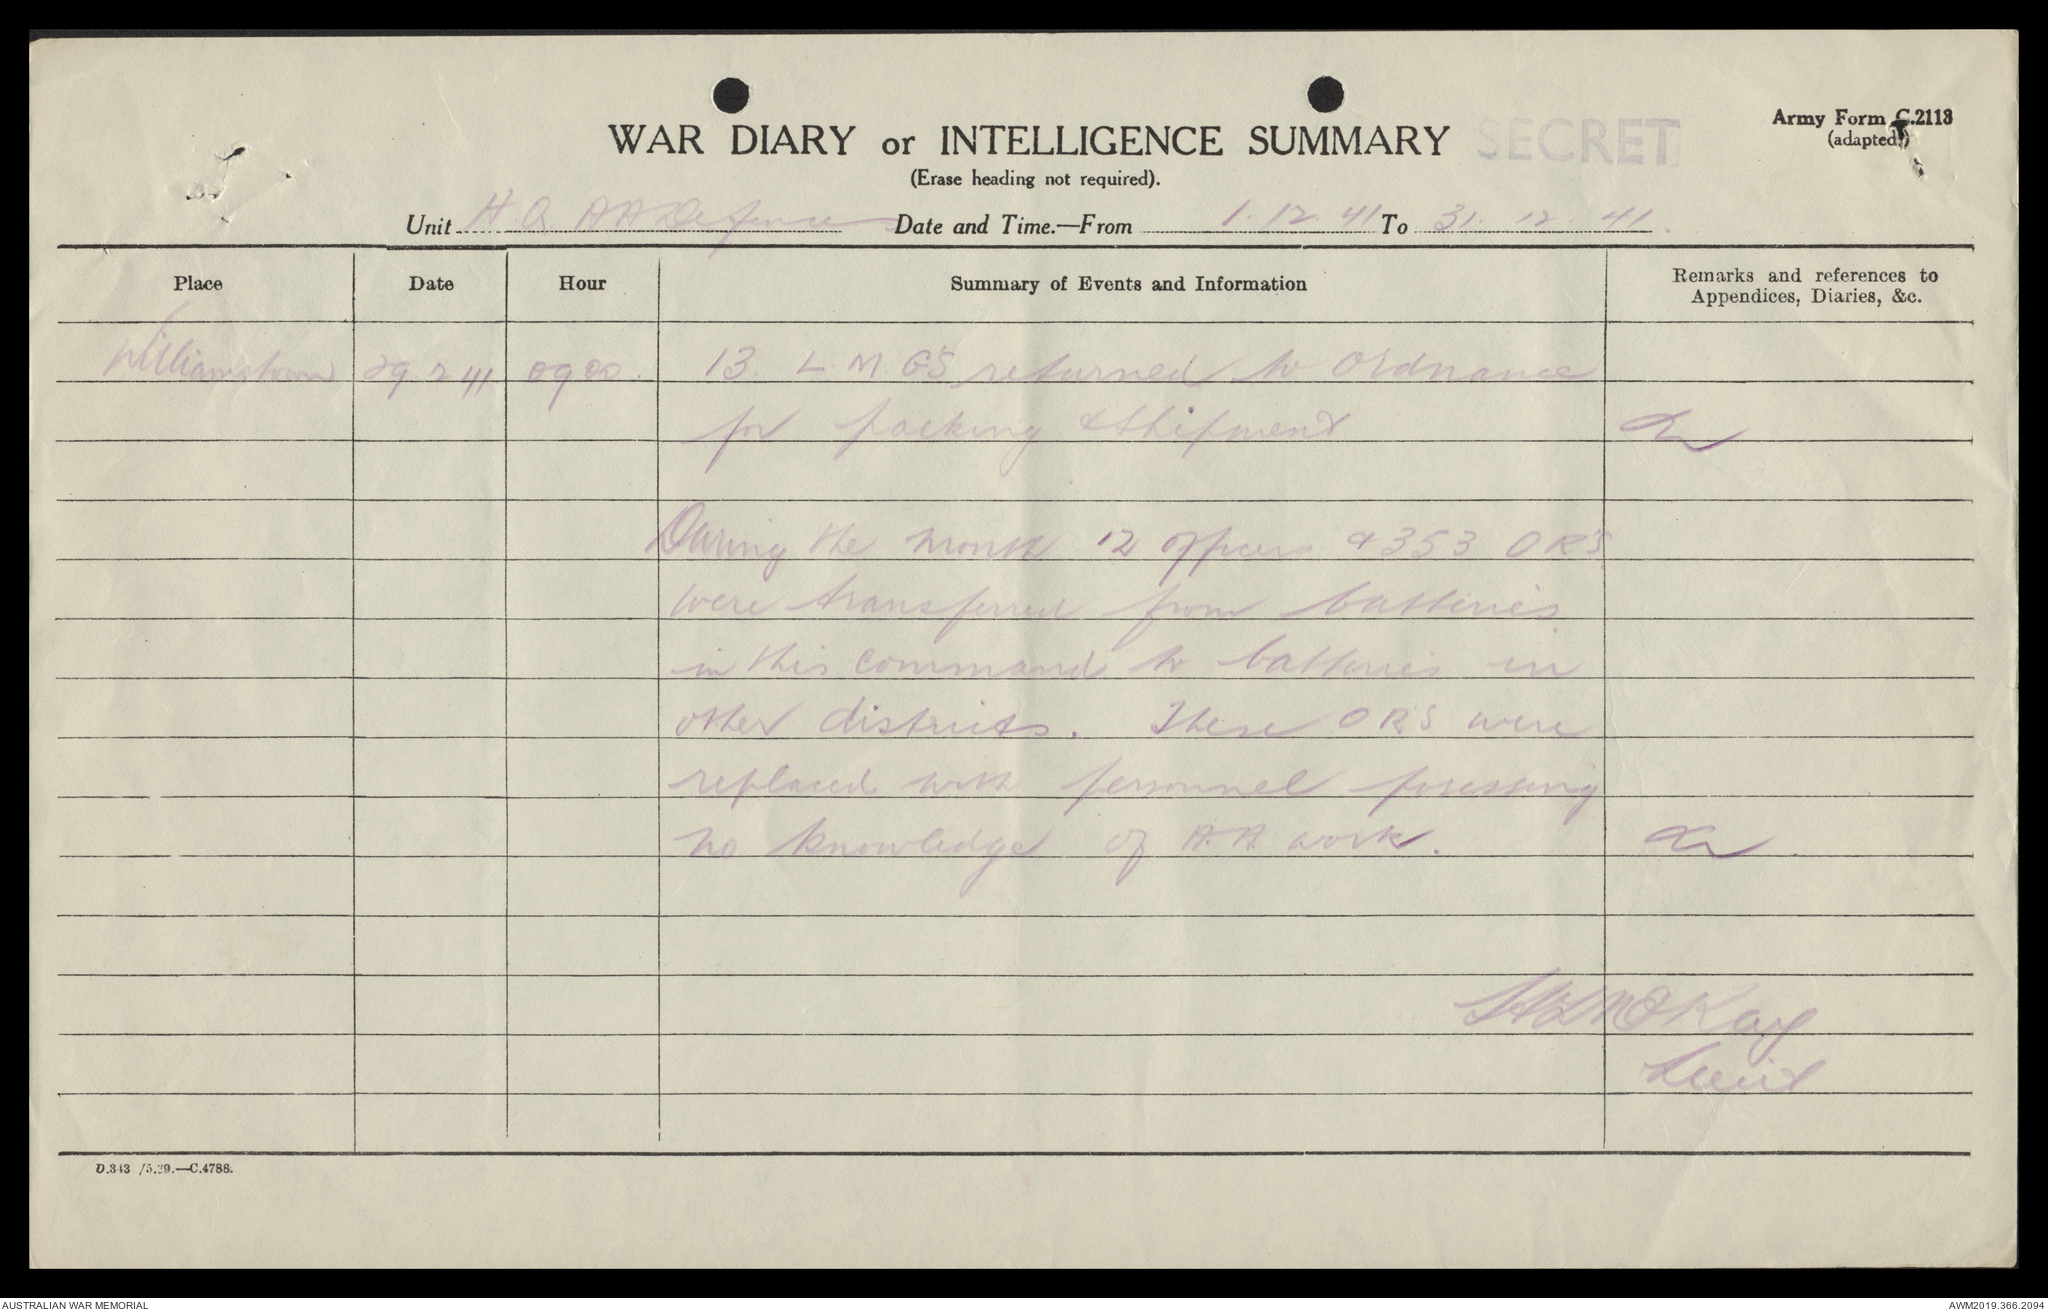 WAR DIARY or INTELLIGENCE SUMMARY SECRET
Army Form C.2113
(adapted)
(Erase heading not required).
Unit H.Q. AA Defences Date and Time.—From 1.12.41 To 31.12.41.
Place Date Hour Summary of Events and Information Remarks and references to
Appendices, Diaries, &c.
Williamstown 29.2 41 0900. 13. L.M.G'S returned to Ordnance
for packing & shipment
During the month 12 officers & 353 ORS
were transferred from batteries
in this command to batteries in
other districts. These ORS were
replaced with personnel posessing
no knowledge of A.A. work.
McKay
Lieut
D.343 /5.39.—C.4788.
AUSTRALIAN WAR MEMORIAL
AWM2019.366.2094